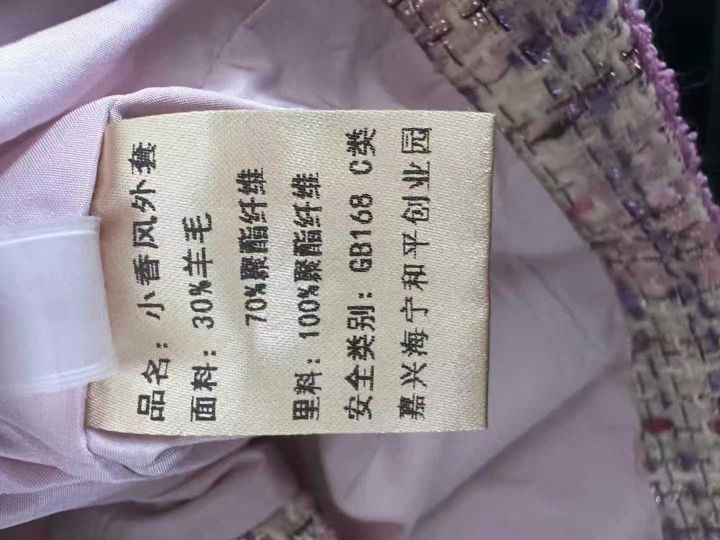 品名：小香风外套
面料：30%羊毛
70%聚酯纤维
里料：100%聚酯纤维
安全类别：GB168 C类
嘉兴海宁和平创业园